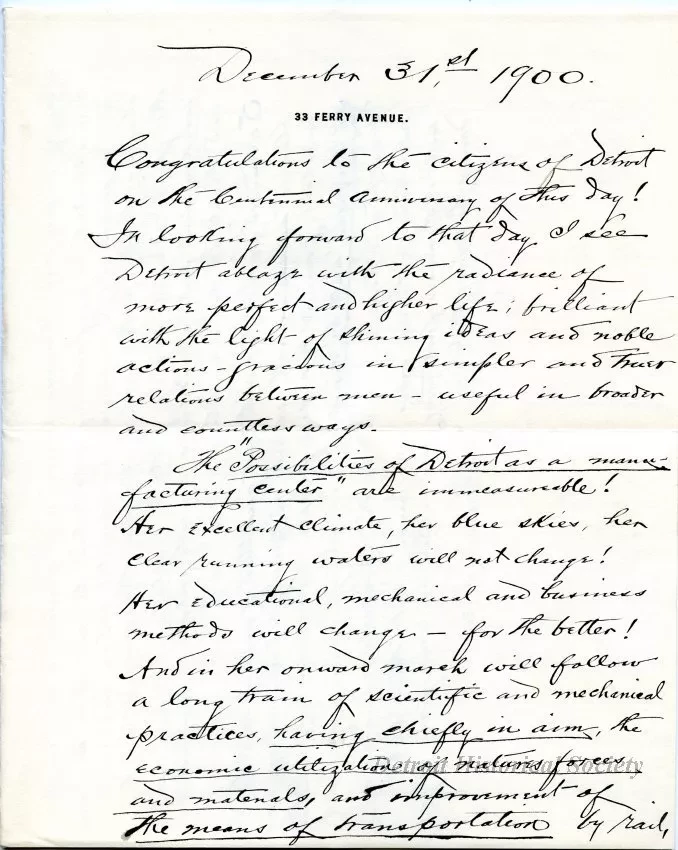 December 31st, 1900.
33 FERRY AVENUE.
Congratulations to the citizens of Detroit
on the Centennial anniversary of this day!
In looking forward to that day I see
Detroit ablaze with the radiance of
more perfect and higher life; brilliant
with the light of shining ideas and noble
actions – gracious in simpler and truer
relations between men – useful in broader
and countless ways.
The "Possibilities of Detroit as a manu-
facturing center" are immeasureable!
Her excellent climate, her blue skies, her
clear running waters will not change!
Her educational, mechanical and business
methods will change – for the better!
And in her onward march will follow
a long train of scientific and mechanical
practices, having chiefly in aim, the
economic utilization of natures forces
Detroit Historical Society
and materials, and improvement of
the means of transportation by rail,